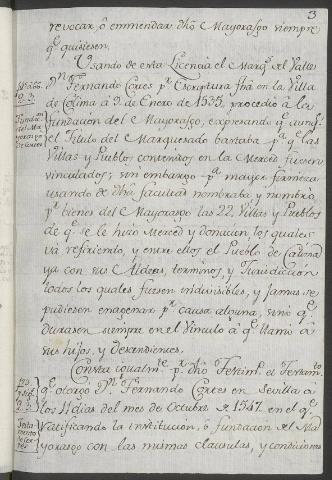 3
revocar, ô emmendar dho Mayorasgo siempre
qe quisiesen.
Usando de esta Licencia el Marqs del Valle
Dn Fernando Cortes pr Escriptura fha en la Villa
de Colima â 9. de Enero de 1535, procediô â la
fundacion del Mayorasgo, expresando qe aunqe
el Titulo del Marquesado bastaba pa qe las
Villas y Pueblos contenidos en la Merced fuesen
vinculados; sin embargo pa mayor firmeza
usando de dha facultad nombraba y nombrô
pr bienes del Mayorasgo las 22. Villas y Pueblos
de qe se le hizo Merced y donacion, los quales
va refiriendo, y entre ellos el Pueblo de
con sus Aldeas, terminos, y Jurisdiccion
todos los quales fuesen indivisibles, y jamas se
pudiesen enagenar pr causa alguna, sino qe
durasen siempre en el Vinculo â qe llamô â
sus hijos, y descendientes.
Consta igualmte pr dho Testimo el Testamto
qe otorgô Dn Fernando Cortes en Sevilla â
los 11 dias del mes de Octubre de 1547. en el qe
ratificando la institucion, ô fundacion del Ma
yorasgo con las mismas clausulas, y condiciones
Fundacion
del Ma
yorasgo
de Cortes
Testa
mento
de Cor
tes